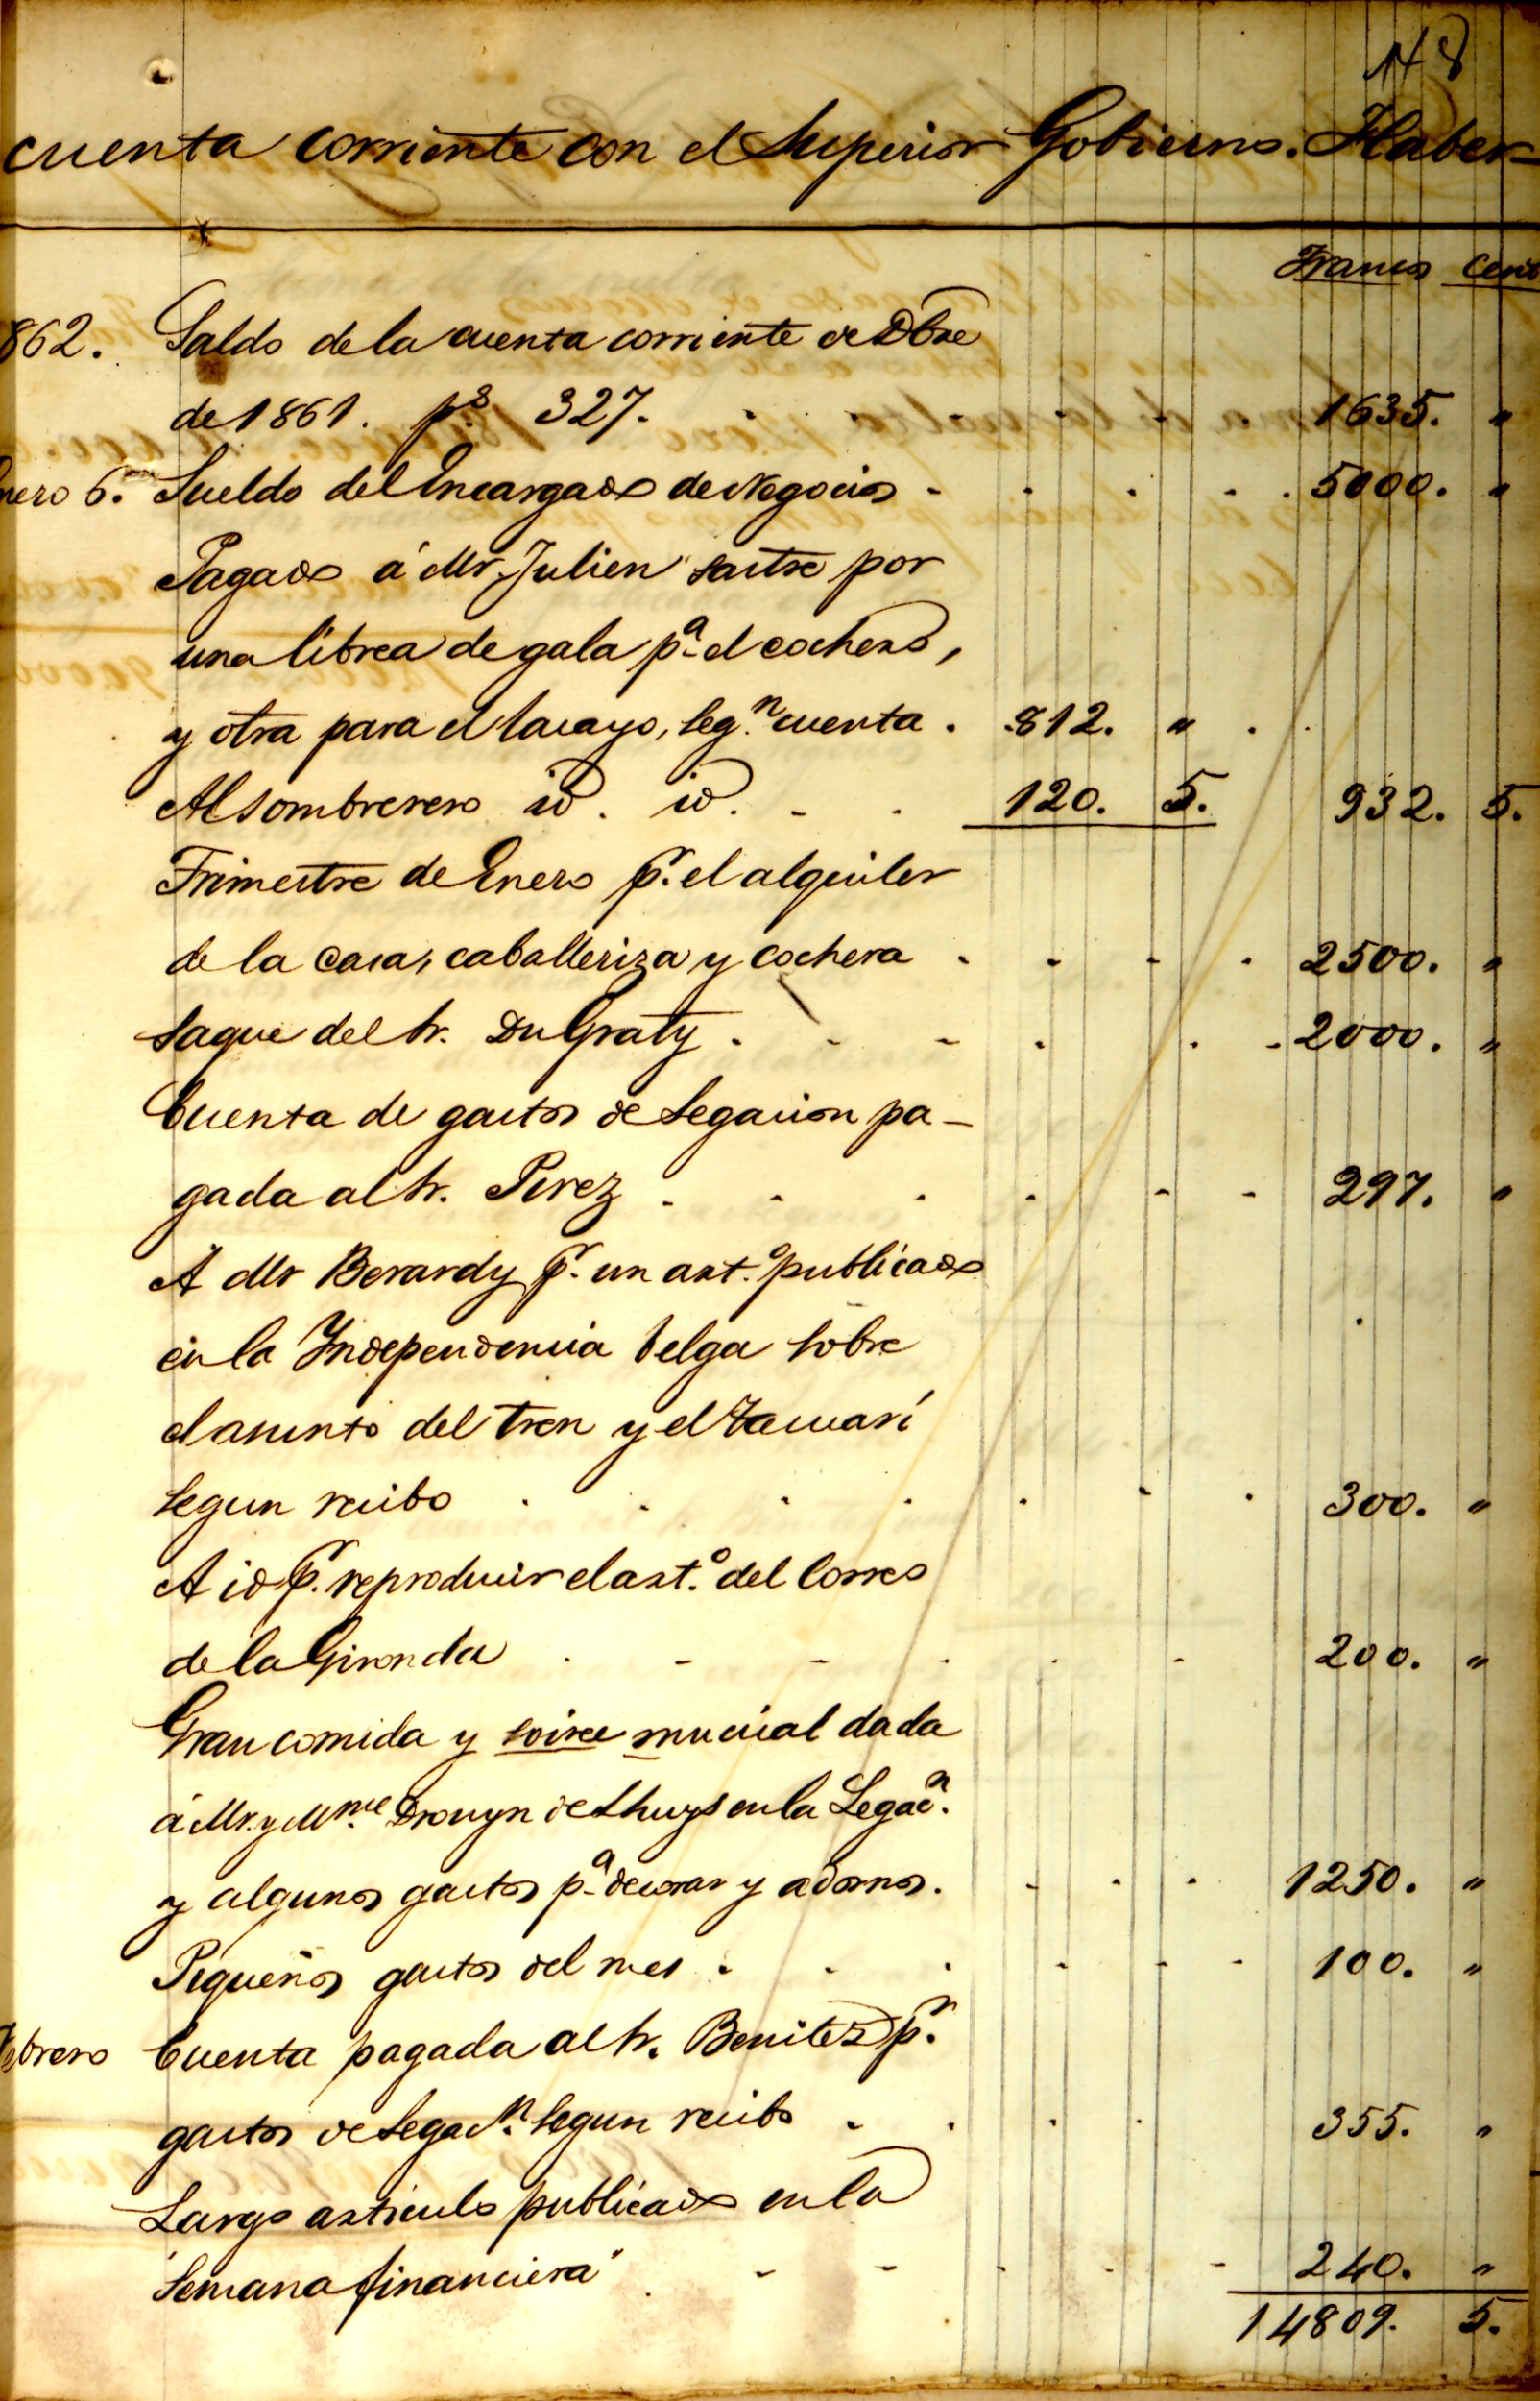 148
cuenta corriente con el Superior Gobierno. Haber
Francos Cent
862. Saldo de la cuenta corriente de Dbre
de 1861. ps 327. 1635. "
nero 6. Sueldo del Encargado de Negocios 5000. "
Pagado á Mr. Julien sastre por
una librea de gala pa el cochero,
y otra para el lacayo, segn cuenta. 812. "
Al sombrerero id. id. 120. 5. 932. 5.
Trimestre de Enero pr. el alquiler
de la casa, caballeriza y cochera 2500. "
Saque del Sr. Du Graty 2000. "
Cuenta de gastos de Legacion pa-
gada al Sr. Perez 297. "
A Mr Berardy pr. un art.o publicado
en la Yndependencia belga sobre
el asunto del tren y el Tacuarí
segun recibo 300. "
A id pr. reproducir el art.o del Correo
de la Gironda 200. "
Gran comida y soiree musical dada
á Mr. y Mme Drouyn de Lhuys en la Legacn.
y algunos gastos pa decorar y adornos. 1250. "
Pequeños gastos del mes 100. "
ebrero Cuenta pagada al Sr. Benitez pr.
gastos de Legacn. segun recibo 355. "
Largo articulo publicado en la
"Semana financiera" 240. "
14809. 5.